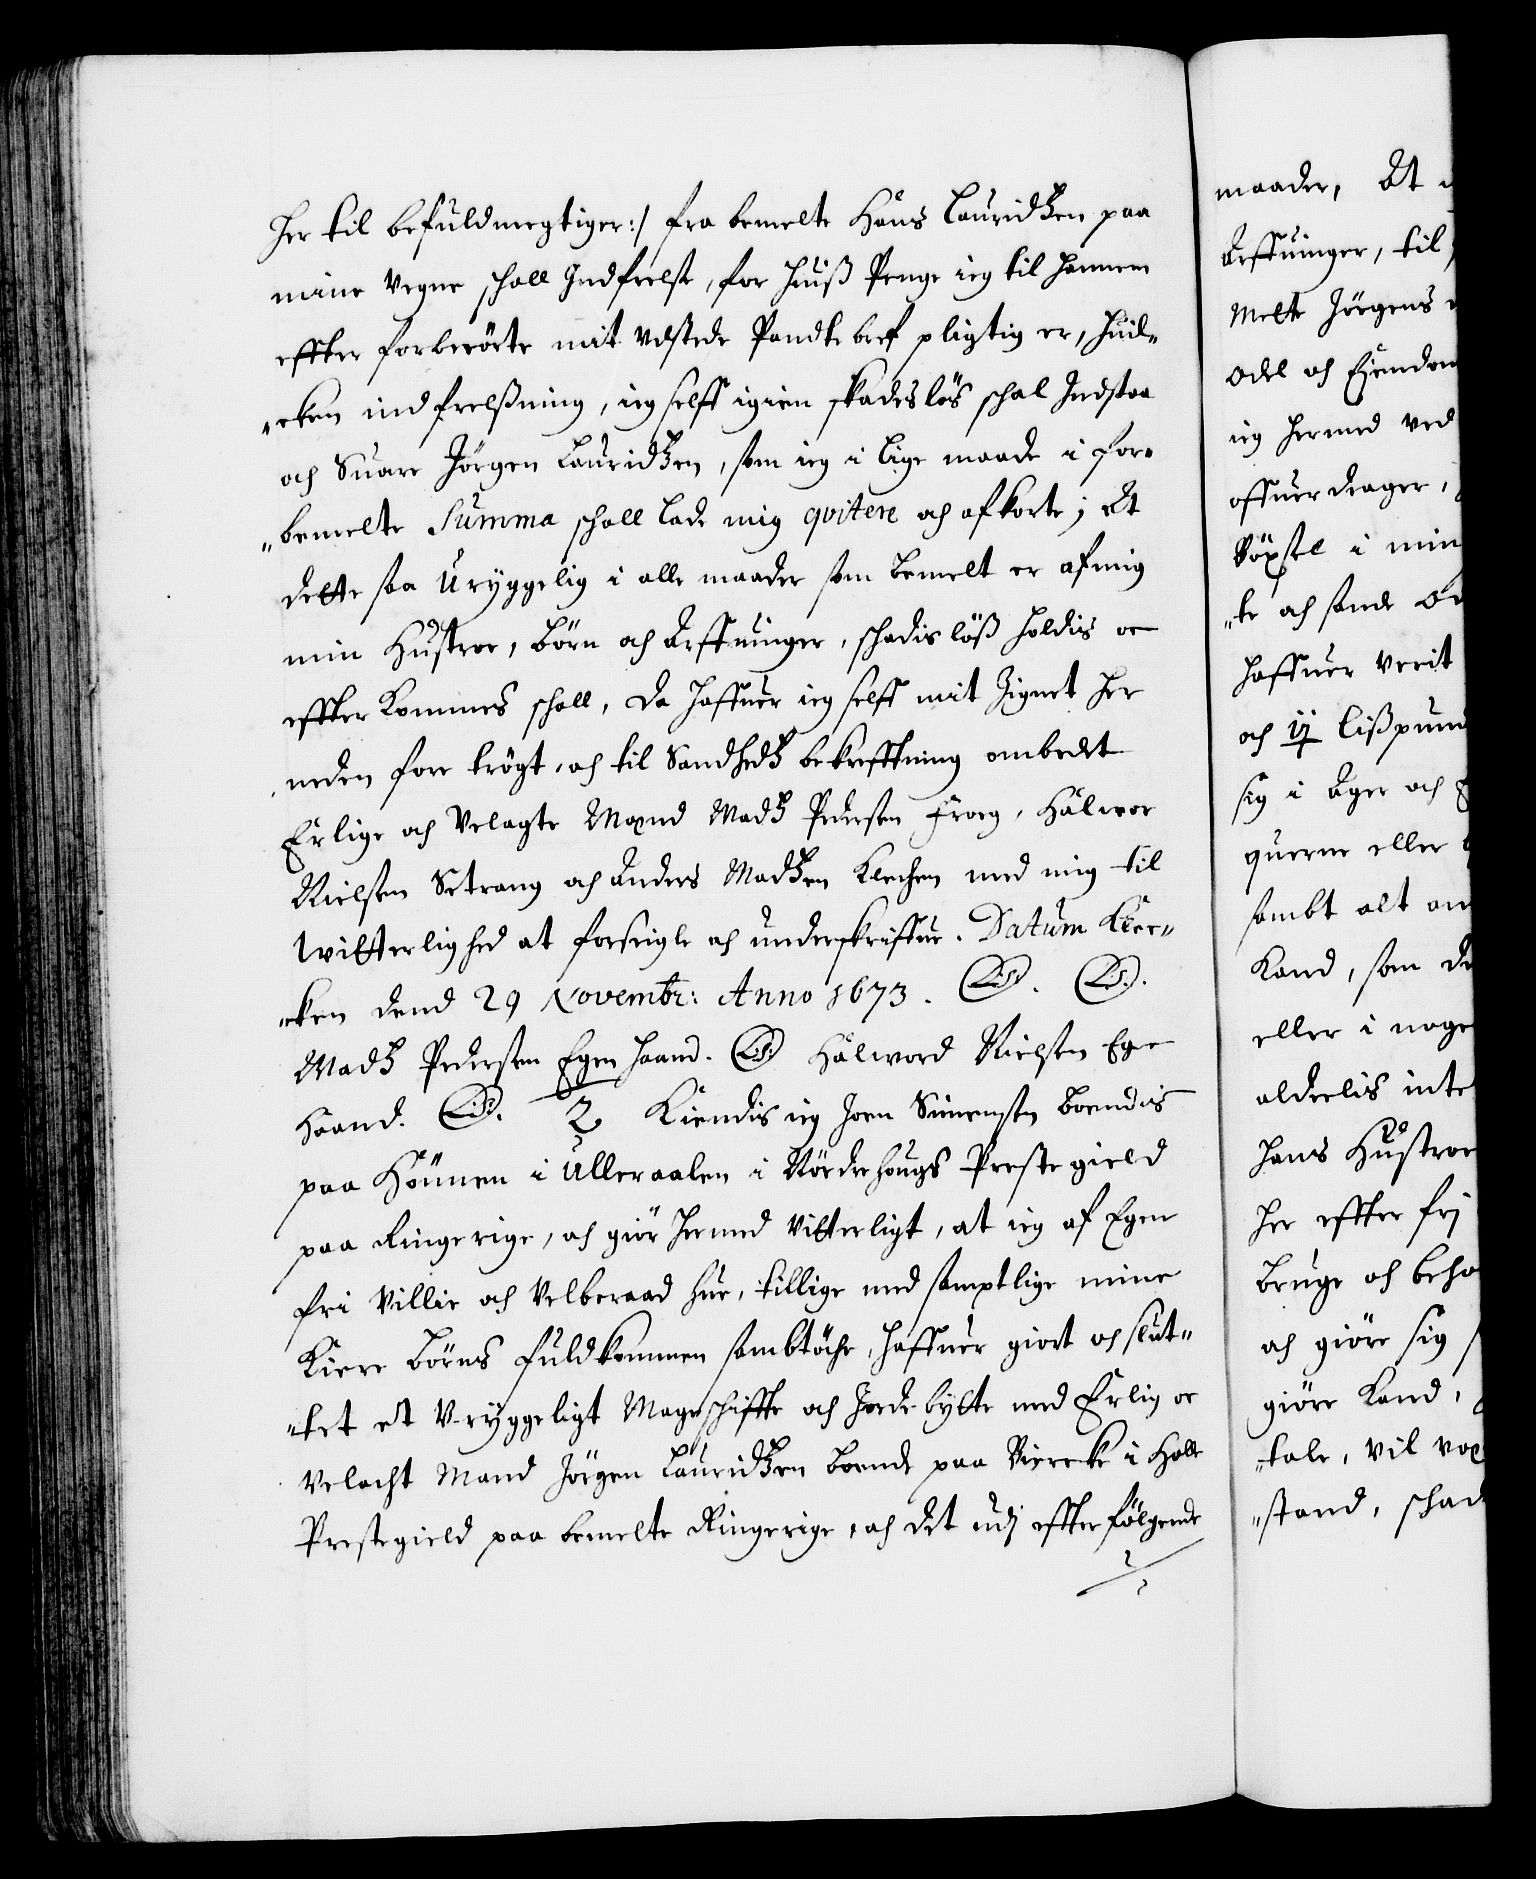 her til befuldmegtiger:/ fra bemelte Hans Lauridtzen paa
mine vegne schall Indfrelse, for huiß Penge ieg til hannem
effter forberörte mit udstede Pandtebref pligtig er, huil„
„cken indfrelßning, ieg selff igien skadeslös schal Indstaa
och Suare Jörgen Lauridtzen, som ieg i lige maade i for„
„bemelte Summa schall lade mig qvitere och afkorte; At
dette saa Uryggelig i alle maader som bemelt er af mig
min Hustroe, börn och Arffuinger, schadislöß holdis oc
effter kommes schall, da haffuer ieg selff mit Zignet her
neden fore trögt, och til Sandhedtz bekrefftning ombedet
Erlige och Velagte Mænd Madtz Pedersen Froeg, Halwor
Nielsen Setrang och Anders Madtzen Klechen med mig til
Witterlighed at forseigle och underskriffue. Datum Kler„
„ken dend 29 Novembr: Anno 1673. L.S. L.S.
Madtz Pedersen Egen haand. L.S. Halword Nielsen Egen
Haand. L.S. 2. Kiendis ieg Joen Simensen boendis
paa Hönnen i Ulleraalen i Nörderhougs Prestegield
paa Ringerige, och giör hermed vitterligt, at ieg af Egen
fri Villie och Velberaad hue, tillige med samptlige mine
Kiere börns fuldkommen sambtöche, haffuer giort och slut„
„tet et V-ryggeligt Mageschiffte och Jordebytte med Erlig oc
Velacht Mand Jörgen Lauridtzen boende paa Viercke i Holle
Prestegield paa bemelte Ringerige, och det udj effterfölgende
maader, At
Arffuinger, til
melte Jörgens
Odel och Eiendom
ieg hermed ved
offuerdrager,
Böxsel i min
„te och sande
haffuer Verit
och ij lißpund
sig i Ager och
querne eller
sambt alt
Kand, som
eller i noge
alderlis inte
hans Hustroe
her effter frj
bruge och beho
och giöre sig
giöre Kand,
„tale, vil
„stand, schad